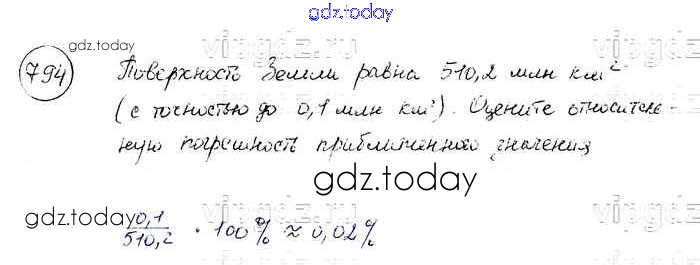 gdz.today
794 Поверхность Земли равна 510,2 млн км²
(с точностью до 0,1 млн км²). Оцените относитель-
ную погрешность приближенного значения
0,1/510,2 · 100% ≈ 0,02%
gdz.today
vipgdz.ru
gdz.today
gdz.today
vipgdz.ru
vipgdz.ru